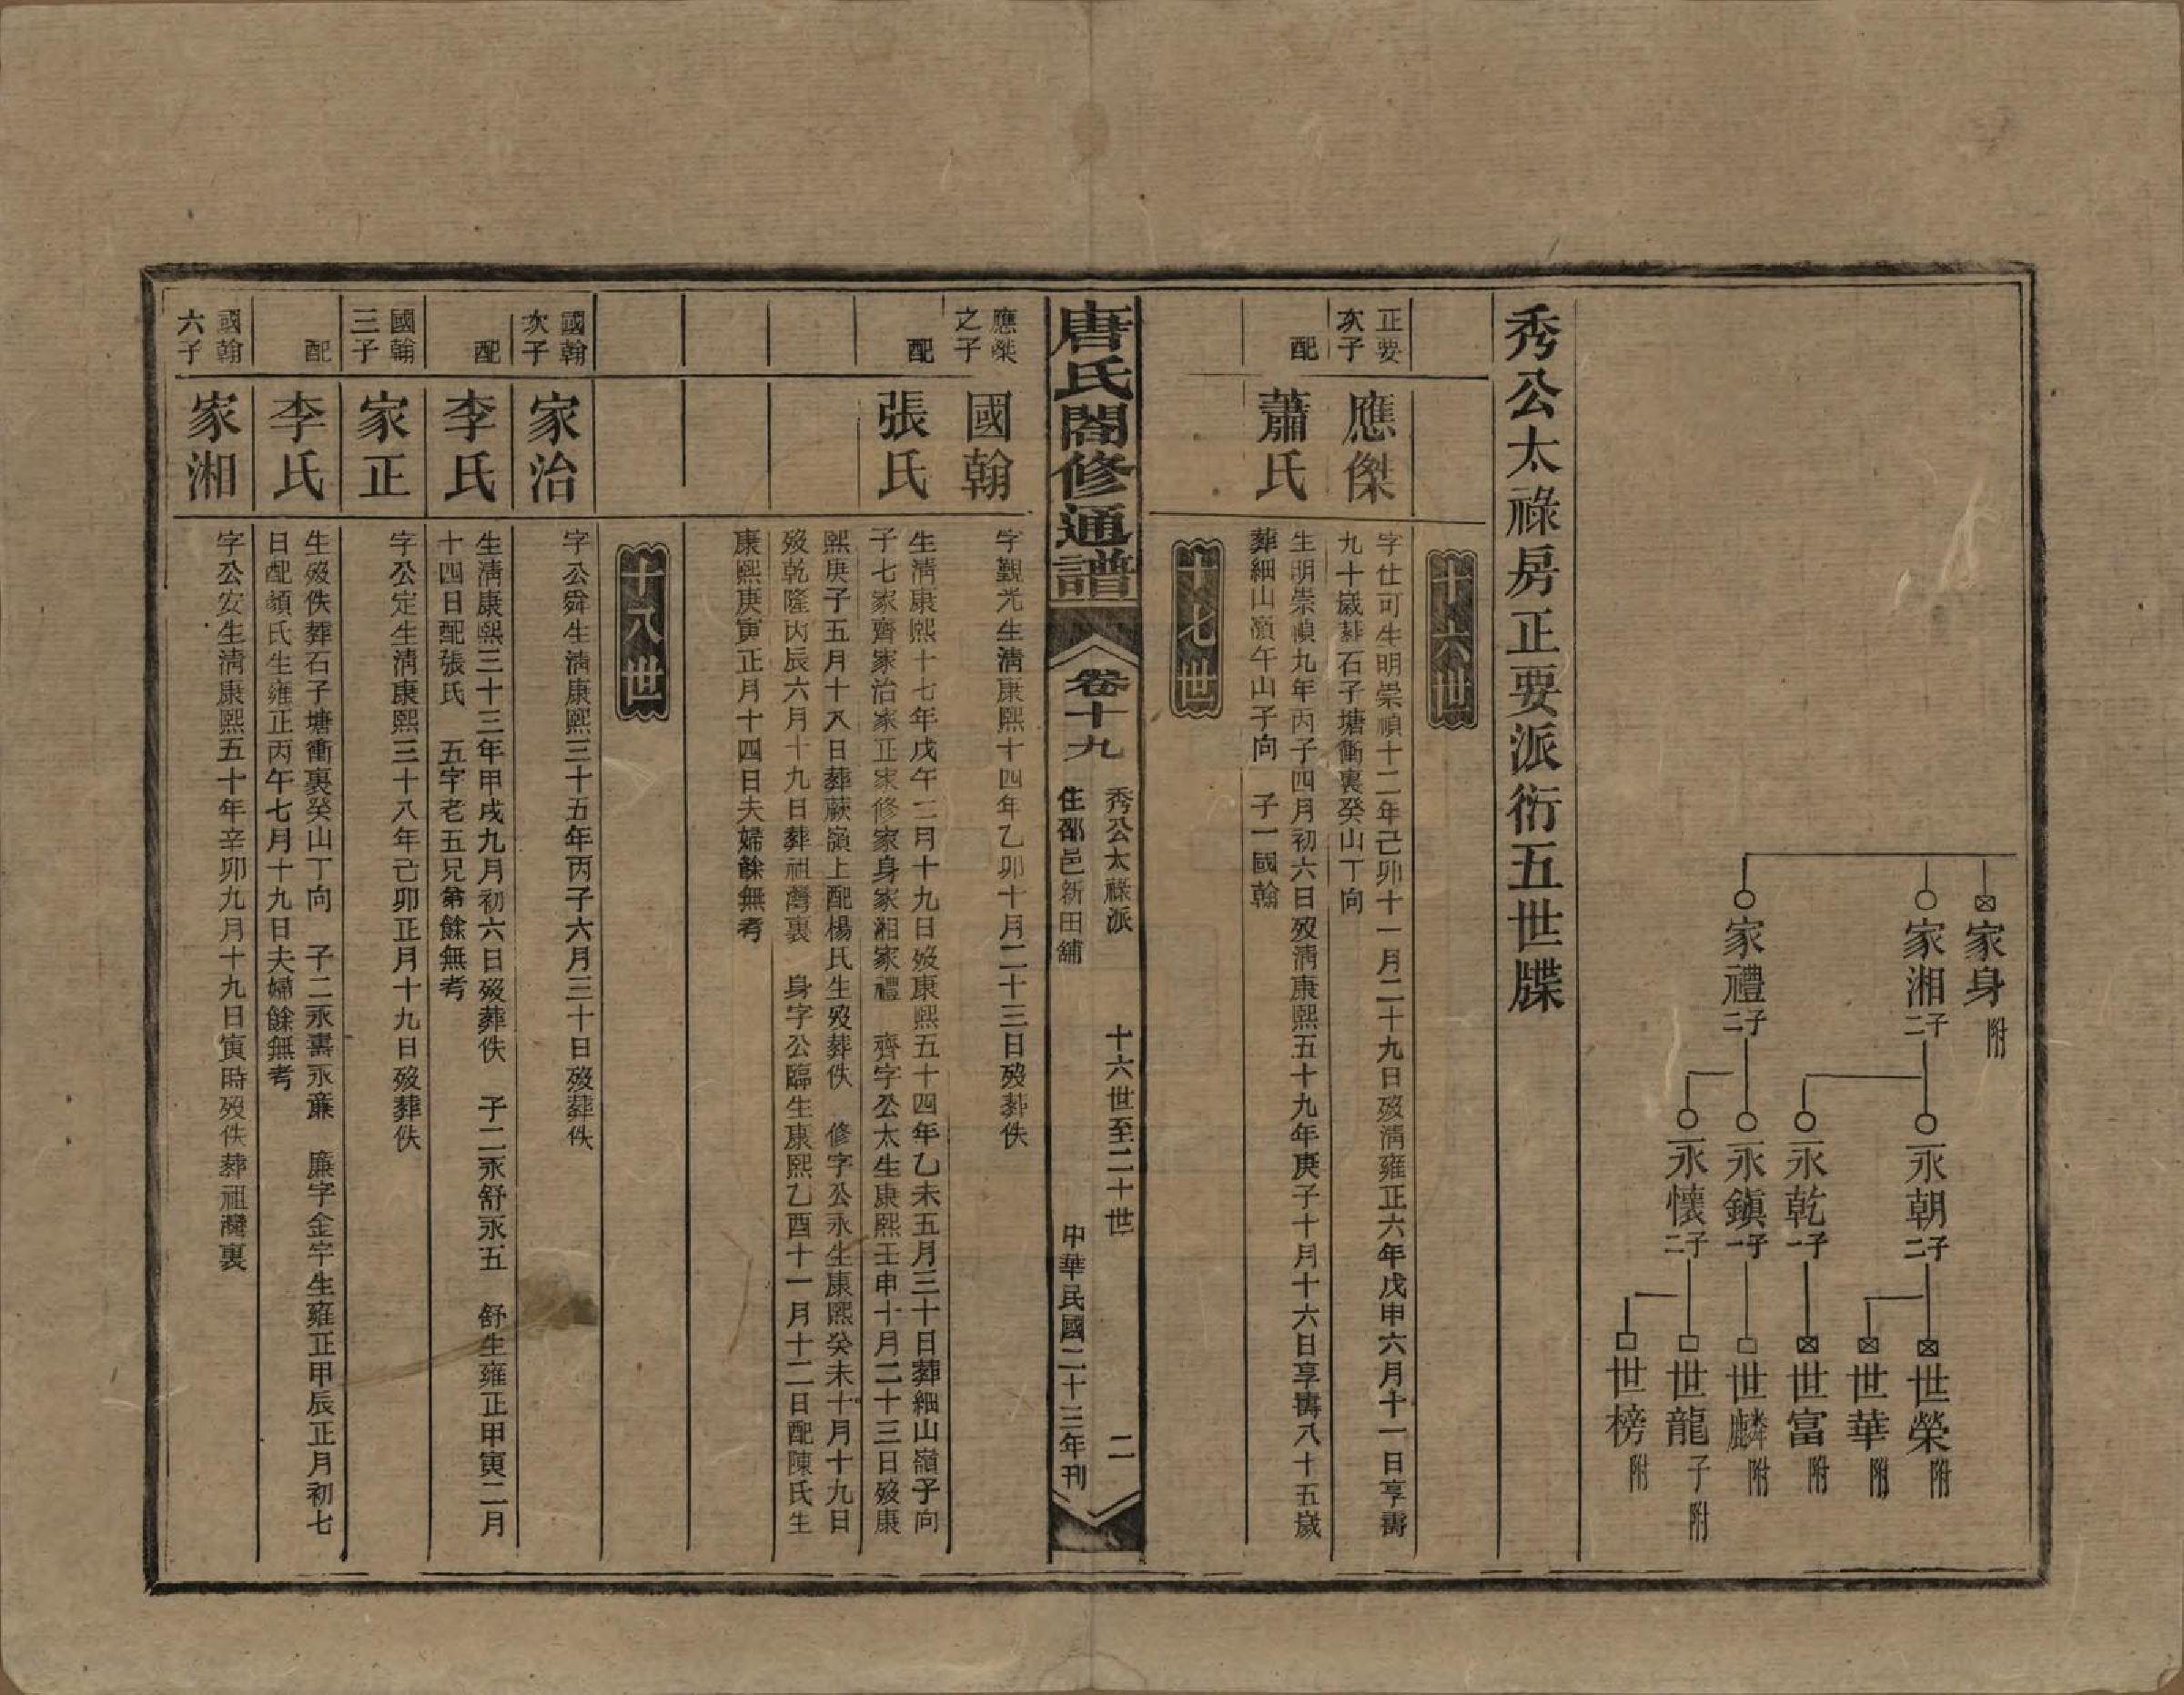 家身 附
家湘 二子
家禮 二子
永朝 二子
永乾 一子
永鎮 一子
永懷 二子
世榮 附
世華 附
世富 附
世麟 附
世龍 子附
世榜 附
秀公太祿房正要派衍五世牒
十六世
正要次子 應傑
字仕可生明崇禎十二年己卯十一月二十九日歿清雍正六年戊申六月十一日享壽
九十歲葬石子塘衝裏癸山丁向
配 蕭氏
生明崇禎九年丙子四月初六日歿清康熙五十九年庚子十月十六日享壽八十五歲
葬細山嶺午山子向 子一國翰
十七世
唐氏閤修通譜
卷十九
秀公太祿派 十六世至二十世 二
住邵邑新田舖 中華民國二十三年刊
應傑之子 國翰
字觀光生清康熙十四年乙卯十月二十三日歿葬佚
配 張氏
生清康熙十七年戊午二月十九日歿康熙五十四年乙未五月三十日葬細山嶺子向
子七家齊家治家正家修家身家湘家禮 齊字公太生康熙壬申十月二十三日歿康
熙庚子五月十八日葬蕨嶺上配楊氏生歿葬佚 修字公永生康熙癸未十月十九日
歿乾隆丙辰六月十九日葬祖灣裏 身字公臨生康熙乙酉十一月十二日配陳氏生
康熙庚寅正月十四日夫婦餘無考
十八世
國翰次子 家治
字公舜生清康熙三十五年丙子六月三十日歿葬佚
配 李氏
生清康熙三十三年甲戌九月初六日歿葬佚 子二永舒永五 舒生雍正甲寅二月
十四日配張氏 五字老五兄弟餘無考
國翰三子 家正
字公定生清康熙三十八年己卯正月十九日歿葬佚
配 李氏
生歿佚葬石子塘衝裏癸山丁向 子二永壽永廉 廉字金宇生雍正甲辰正月初七
日配顏氏生雍正丙午七月十九日夫婦餘無考
國翰六子 家湘
字公安生清康熙五十年辛卯九月十九日寅時歿佚葬祖灣裏